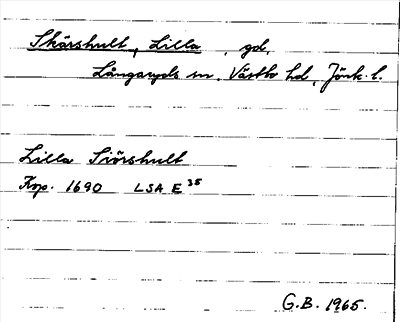 Skärshult, Lilla, gd,
Långaryds sn. Västbo hd, Jönk. l.
Lilla Siörshult
Kop. 1690 LSA E 38
G.B. 1965.